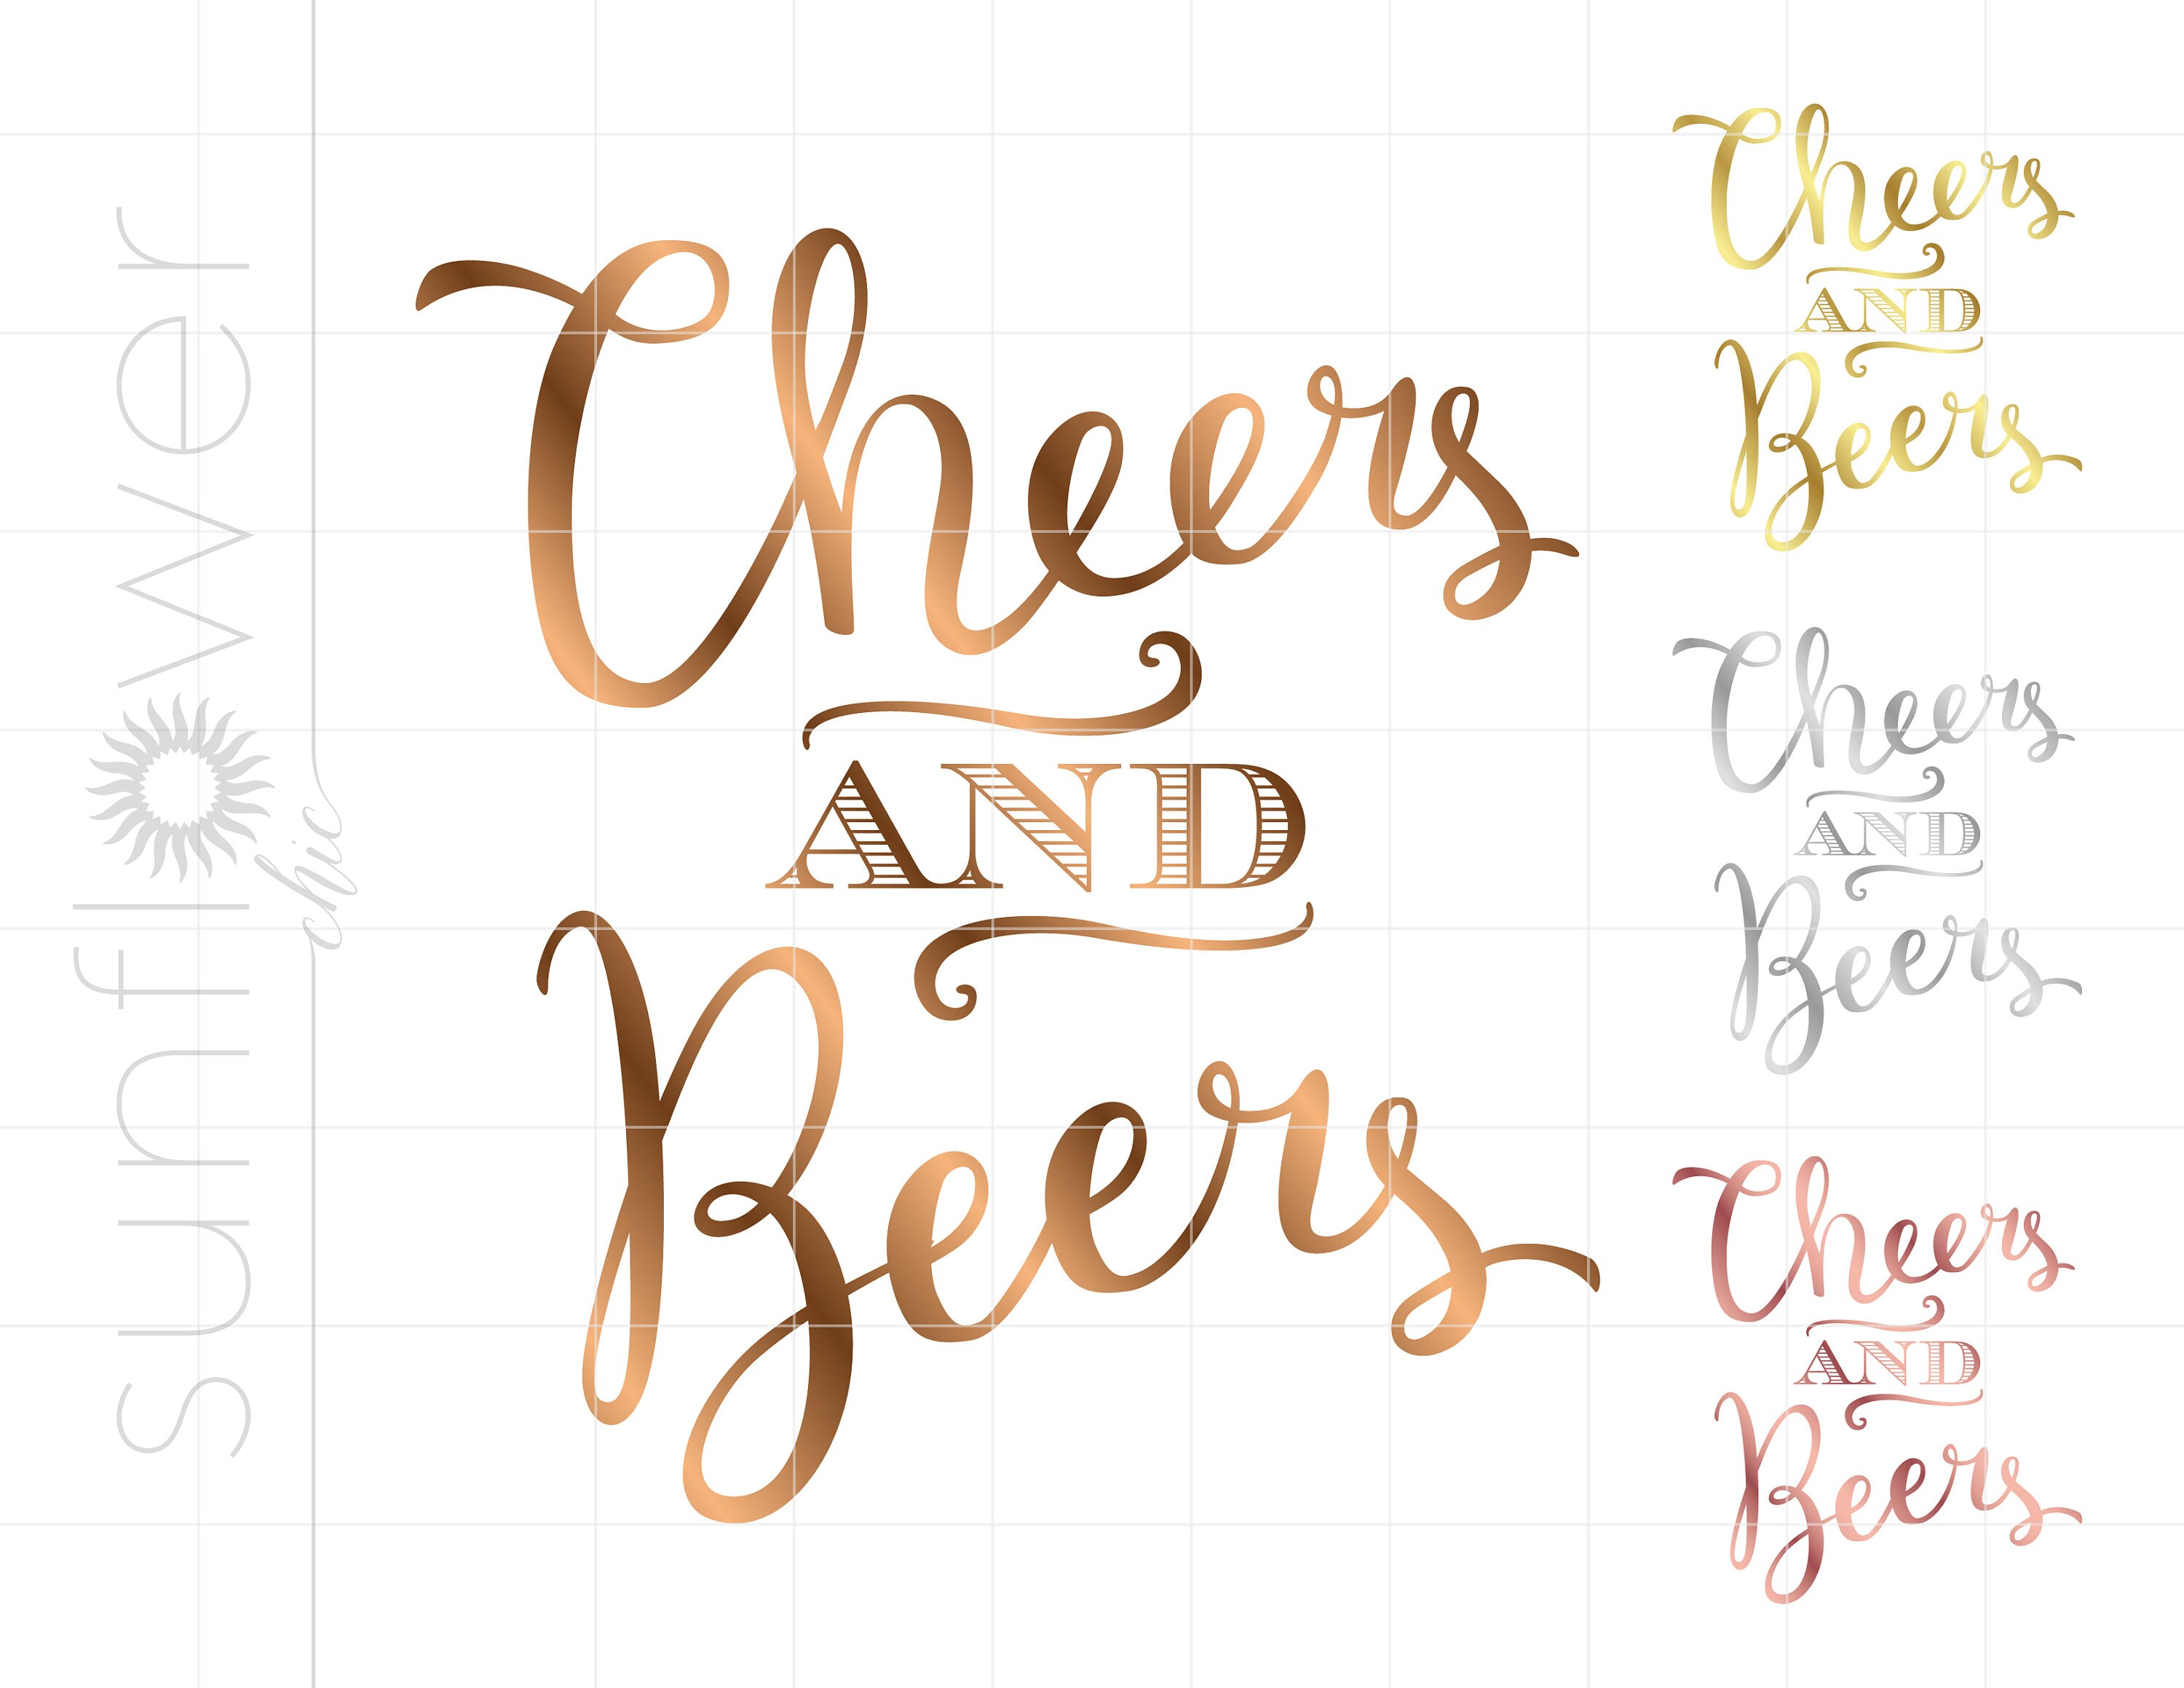 sunflower
chic
Cheers
AND
Beers
Cheers
AND
Beers
Cheers
AND
Beers
Cheers
AND
Beers